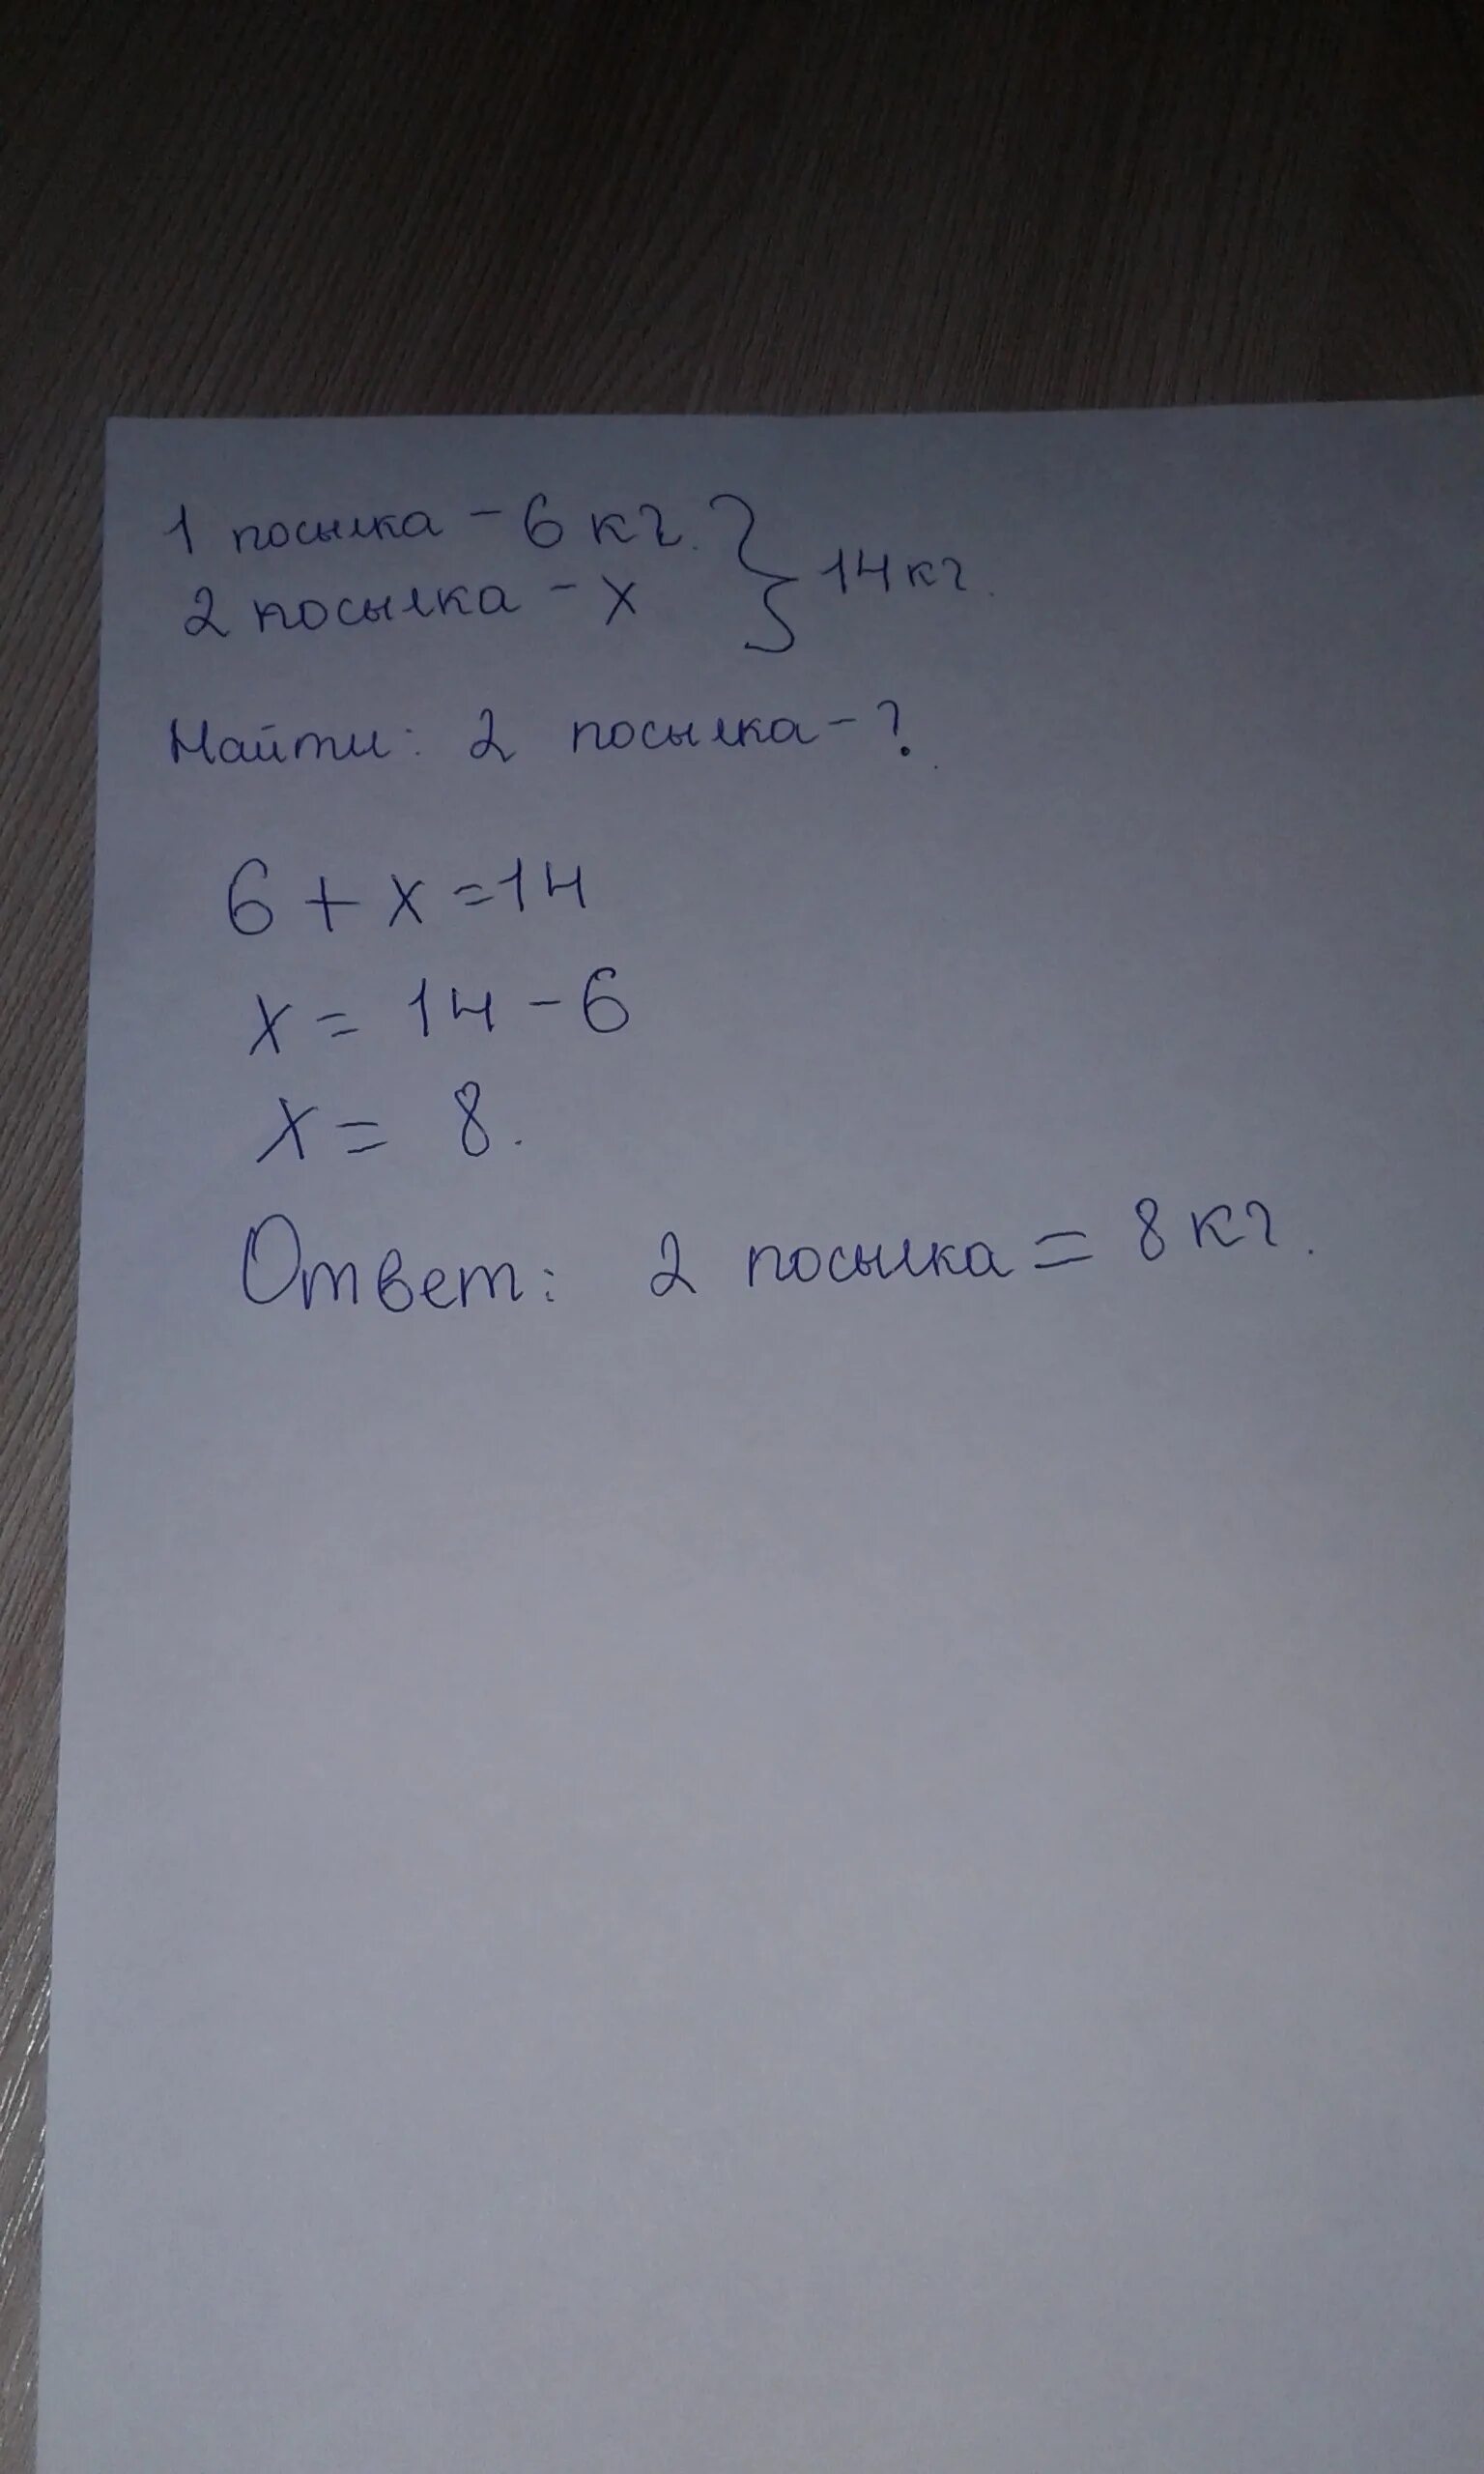 1 посылка - 6 кг. } 14 кг.
2 посылка - х
Найти: 2 посылка - ?
6 + х = 14
х = 14 - 6
х = 8.
Ответ: 2 посылка = 8 кг.